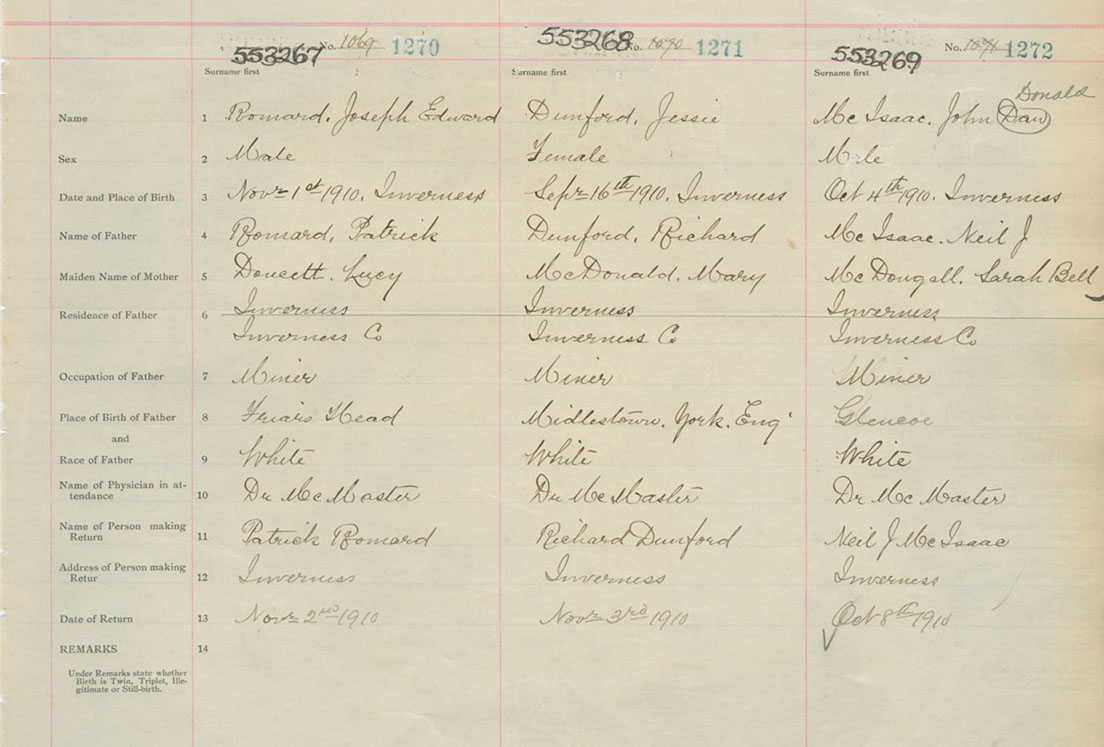 553267 No. 1069 1270 553268 No. 1070 1271 553269 No. 1071 1272
Surname first Surname first Surname first
Donald
Name 1 Romard, Joseph Edward Dunford, Jessie Mc Isaac, John Dan
Sex 2 Male Female Male
Date and Place of Birth 3 Novr 1st 1910. Inverness Sepr 16th 1910. Inverness Oct 4th 1910. Inverness
Name of Father 4 Romard, Patrick Dunford, Richard Mc Isaac. Neil J
Maiden Name of Mother 5 Doucett. Lucy McDonald. Mary Mc Dougall. Sarah Bell
Residence of Father 6 Inverness Inverness Inverness
Inverness Co Inverness Co Inverness Co
Occupation of Father 7 Miner Miner Miner
Place of Birth of Father 8 Friars Head Midlestown. York. Eng' Glencoe
and
Race of Father 9 White White White
Name of Physician in at-
tendance 10 Dr McMaster Dr McMaster Dr McMaster
Name of Person making
Return 11 Patrick Romard Richard Dunford Neil J McIsaac
Address of Person making
Retur 12 Inverness Inverness Inverness
Date of Return 13 Novr 2nd 1910 Novr 3rd 1910 Oct 8th 1910
REMARKS 14
Under Remarks state whether
Birth is Twin, Triplet, Ille-
gitimate or Still-birth.